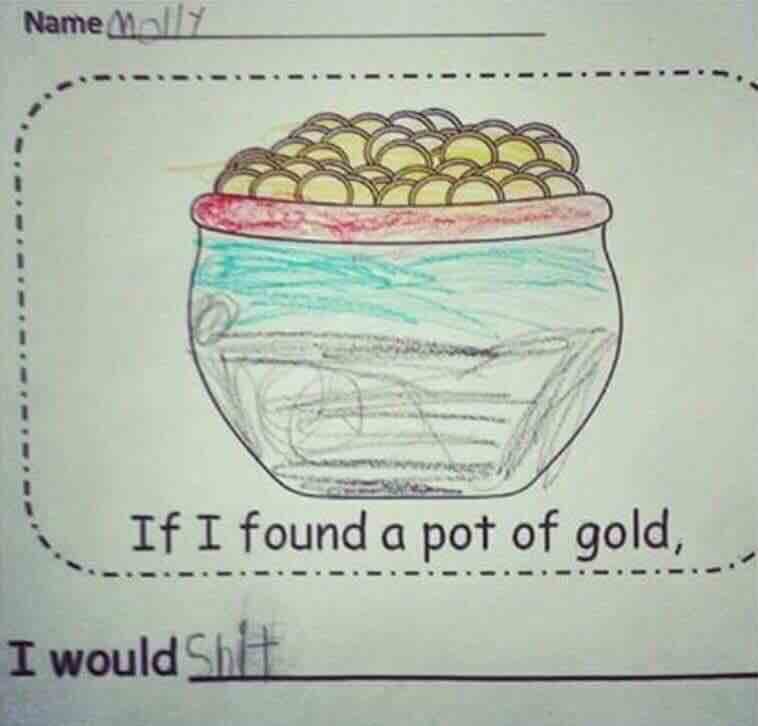 Name Molly
If I found a pot of gold,
I would Shit